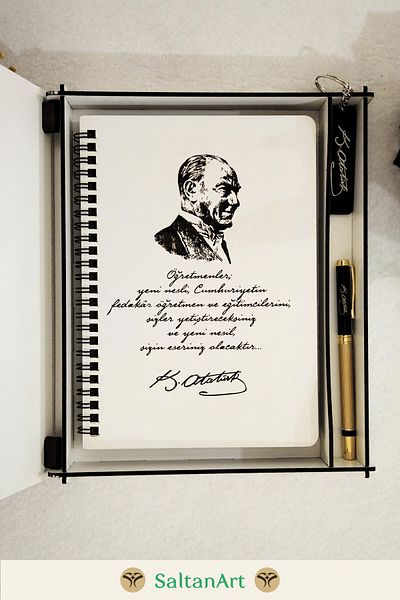 Öğretmenler;
yeni nesli, Cumhuriyetin
fedakâr öğretmen ve eğitimcilerini,
sizler yetiştireceksiniz
ve yeni nesil,
sizin eseriniz olacaktır...
K. Atatürk
K. Atatürk
SaltanArt